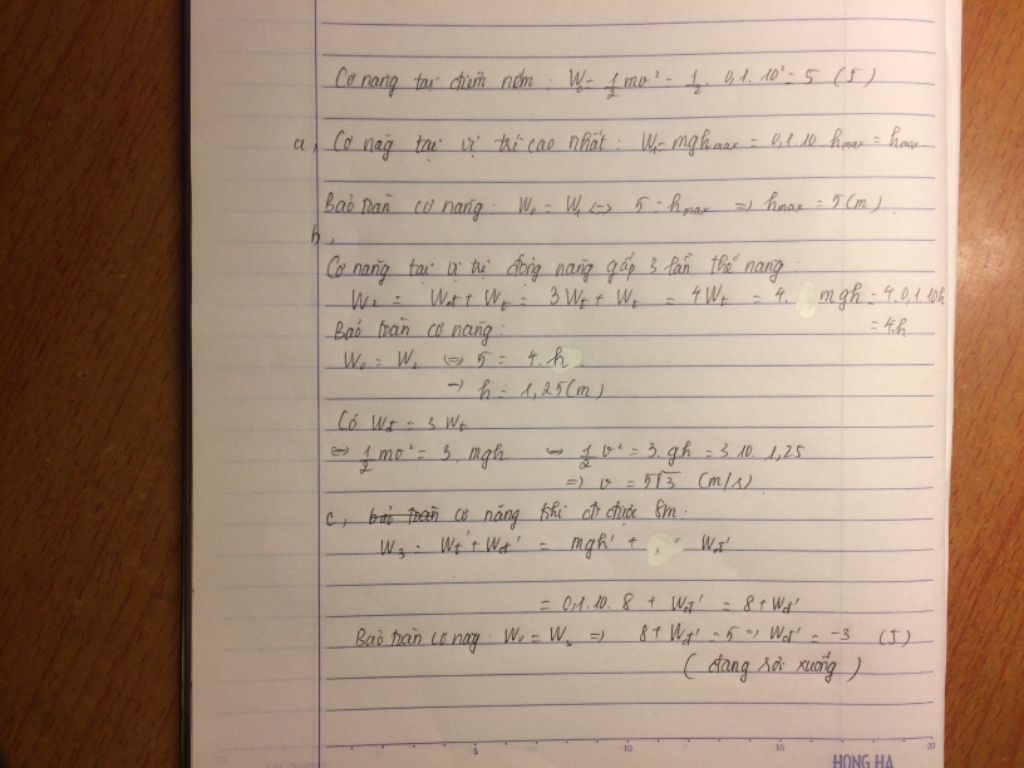 Cơ năng tại điểm ném: W₀ = 1/2 mv² = 1/2 . 0,1. 10² = 5 (J)
a, Cơ năg tại vị trí cao nhất: W₁ = mgh max = 0,1.10. h max = h max
Bảo toàn cơ năng: W₀ = W₁ <=> 5 = h max => h max = 5 (m)
b,
Cơ năng tại vị trí động năng gấp 3 lần thế năng:
W₂ = Wđ + Wt = 3Wt + Wt = 4Wt = 4. mgh = 4.0,1.10h
= 4.h
Bảo toàn cơ năng:
W₀ = W₂ <=> 5 = 4.h
-> h = 1,25 (m)
Có Wđ = 3 Wt
<=> 1/2 mv² = 3. mgh <=> 1/2 v² = 3. gh = 3.10. 1,25
=> v = 5√3 (m/s)
c, bảo toàn cơ năng khi đi được 8m.
W₃ = Wt' + Wđ' = mgh' + Wđ'
= 0,1.10. 8 + Wđ' = 8 + Wđ'
Bảo toàn cơ năg: W₀ = W₃ => 8 + Wđ' = 5 => Wđ' = -3 (J)
(đang rơi xuống)
5 10 15 20
HONG HA